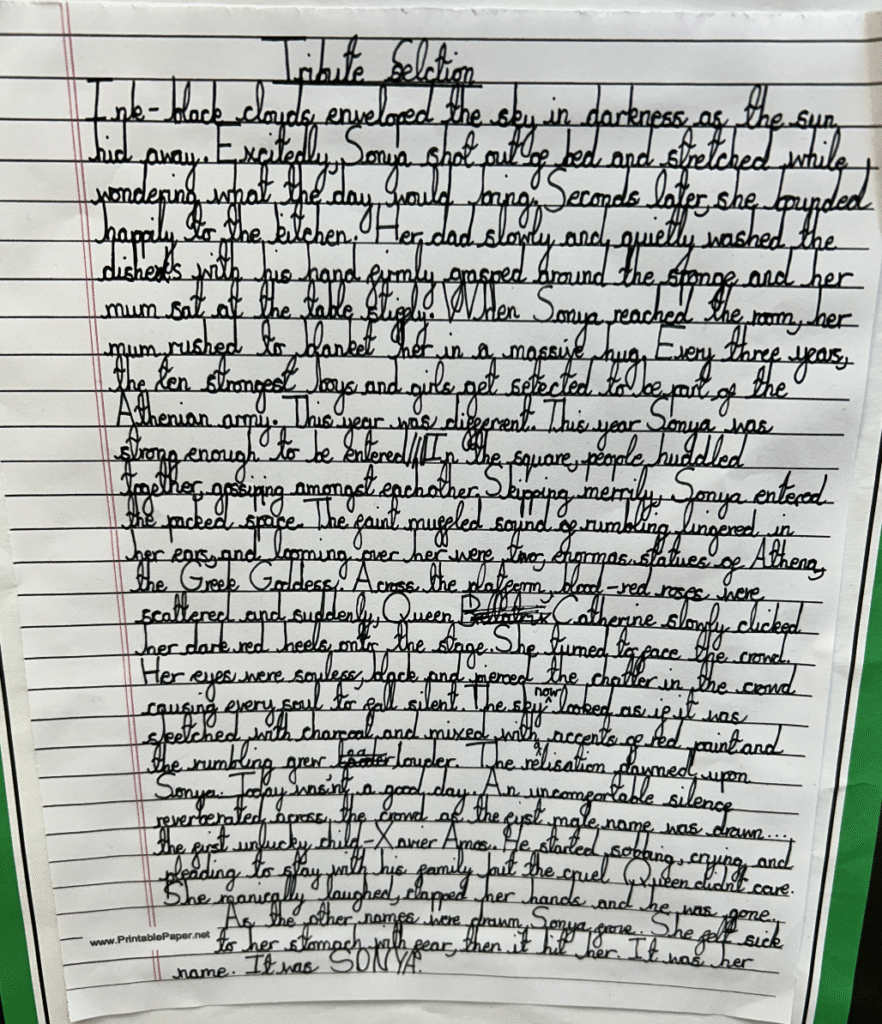 Tribute Selction
Ink-black clouds enveloped the sky in darkness as the sun
hid away. Excitedly, Sonya shot out of bed and stretched while
wondering what the day would bring. Seconds later, she bounded
happily to the kitchen. Her dad slowly and quietly washed the
dishes with his hand firmly grasped around the sponge and her
mum sat at the table stiffly. When Sonya reached the room, her
mum rushed to blanket her in a massive hug. Every three years,
the ten strongest boys and girls get selected to be part of the
Athenian army. This year was different. This year Sonya was
strong enough to be entered// In the square, people huddled
together, gossiping amongst eachother. Skipping merrily, Sonya entered
the packed space. The faint muffled sound of rumbling lingered in
her ears, and looming over her were two, enormas statues of Athena,
the Greek Goddess. Across the platform, blood-red roses were
scattered and suddenly, Queen Bellatrix Catherine slowly clicked
her dark red heels onto the stage. She turned to face the crowd.
Her eyes were souless, black and pierced the chatter in the crowd
causing every soul to fall silent. The sky now looked as if it was
sketched with charcoal and mixed with accents of red paint and
the rumbling grew louder. The realisation dawned upon
Sonya. Today wasn't a good day. An uncomfortable silence
reverberated across the crowd as the first male name was drawn...
the first unlucky child-Xavier Amos. He started sobbing, crying and
pleading to stay with his family but the cruel Queen didnt care.
She manically laughed, clapped her hands and he was gone.
As the other names were drawn, Sonya froze. She felt sick
www.PrintablePaper.net to her stomach with fear, then it hit her. It was her
name. It was SONYA.